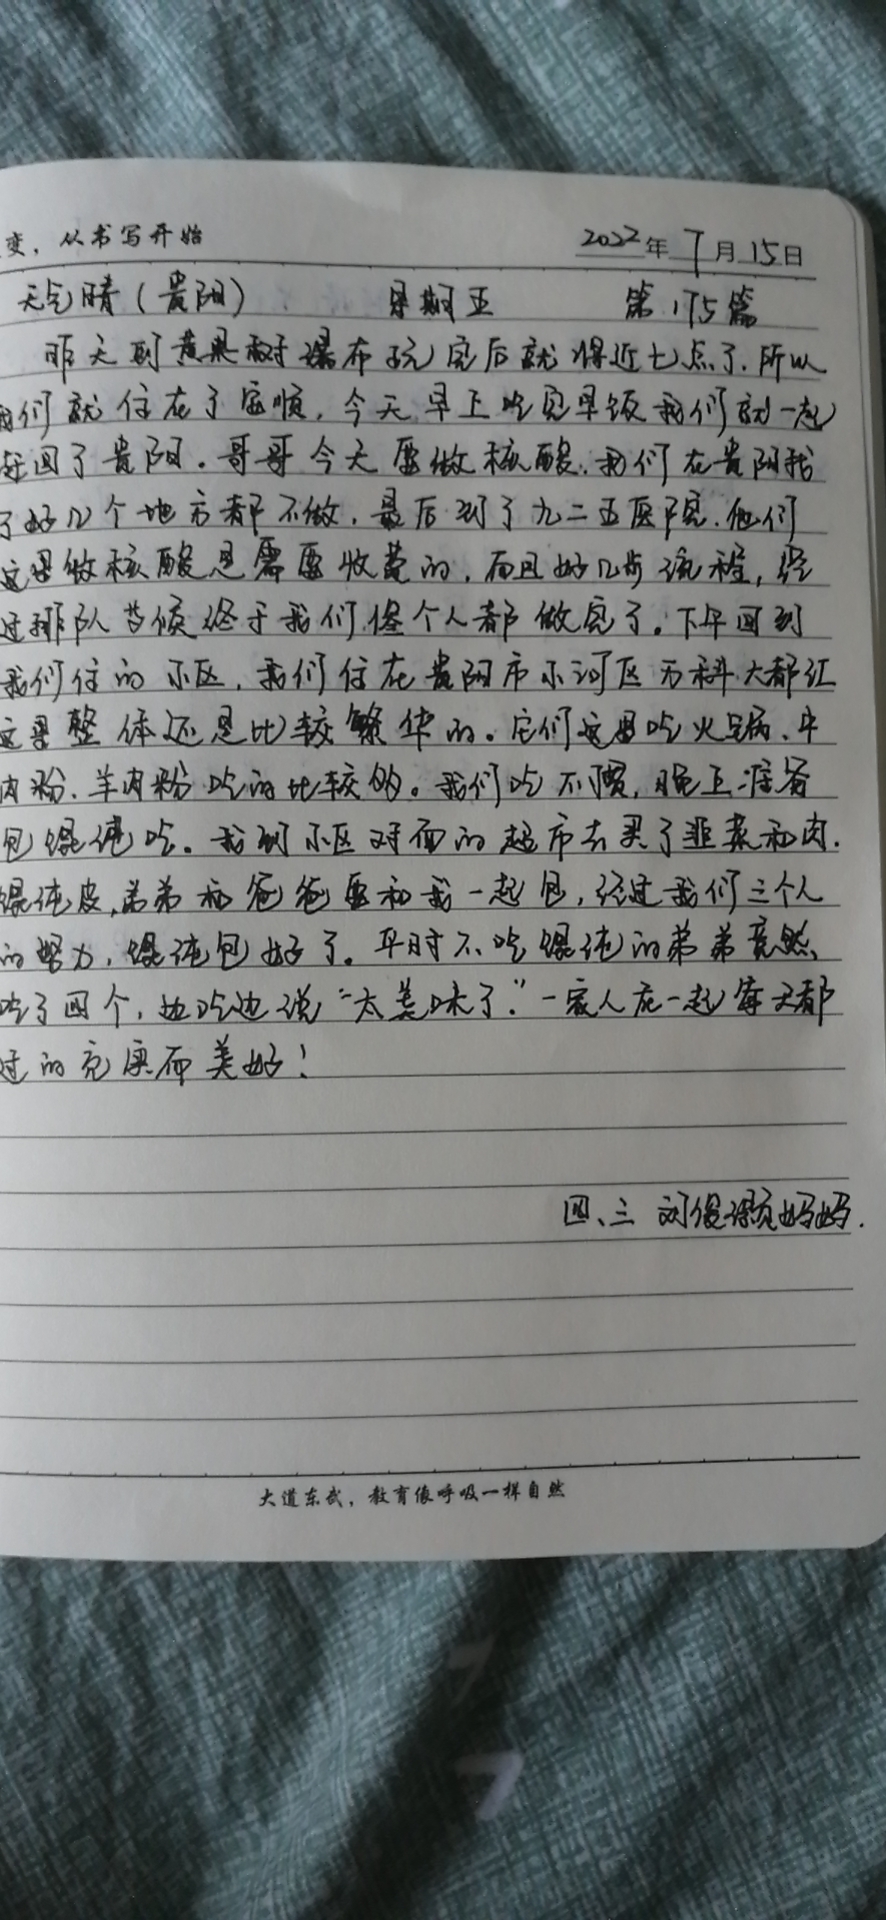 变，从书写开始
2022年7月15日
天气晴（贵阳） 星期五 第175篇
昨天到黄果树瀑布玩完后就将近七点了，所以
我们就住在了安顺，今天早上吃完早饭我们就一起
赶回了贵阳。哥哥今天要做核酸，我们在贵阳找
了好几个地方都不做，最后到了九二五医院，他们
这里做核酸是需要收费的，而且好几步流程，经
过排队等候终于我们俩个人都做完了。下午回到
我们住的小区，我们住在贵阳市小河区万科大都汇
这里整体还是比较繁华的。它们这里吃火锅、牛
肉粉、羊肉粉吃的比较多。我们吃不惯，晚上准备
包馄饨吃。我到小区对面的超市去买了韭菜和肉，
馄饨皮，弟弟和爸爸要和我一起包，经过我们三个人
的努力，馄饨包好了。平时不吃馄饨的弟弟竟然
吃了四个，边吃边说“太美味了”。一家人在一起每天都
过的充实而美好！
四、三 刘俊妈妈.
大道东武，教育像呼吸一样自然